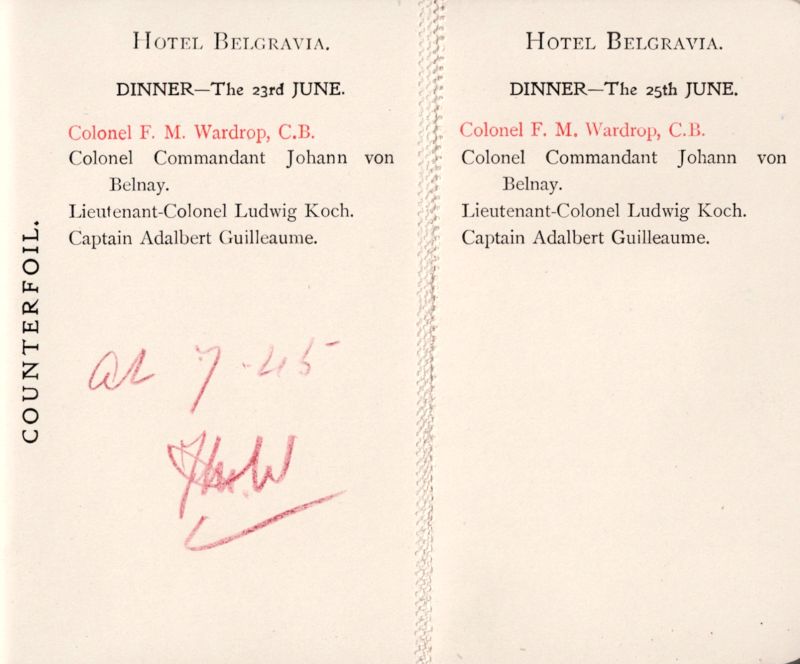 HOTEL BELGRAVIA.
DINNER—The 23rd JUNE.
Colonel F. M. Wardrop, C.B.
Colonel Commandant Johann von
Belnay.
Lieutenant-Colonel Ludwig Koch.
Captain Adalbert Guilleaume.
at 7.45
FMW
COUNTERFOIL.
HOTEL BELGRAVIA.
DINNER—The 25th JUNE.
Colonel F. M. Wardrop, C.B.
Colonel Commandant Johann von
Belnay.
Lieutenant-Colonel Ludwig Koch.
Captain Adalbert Guilleaume.